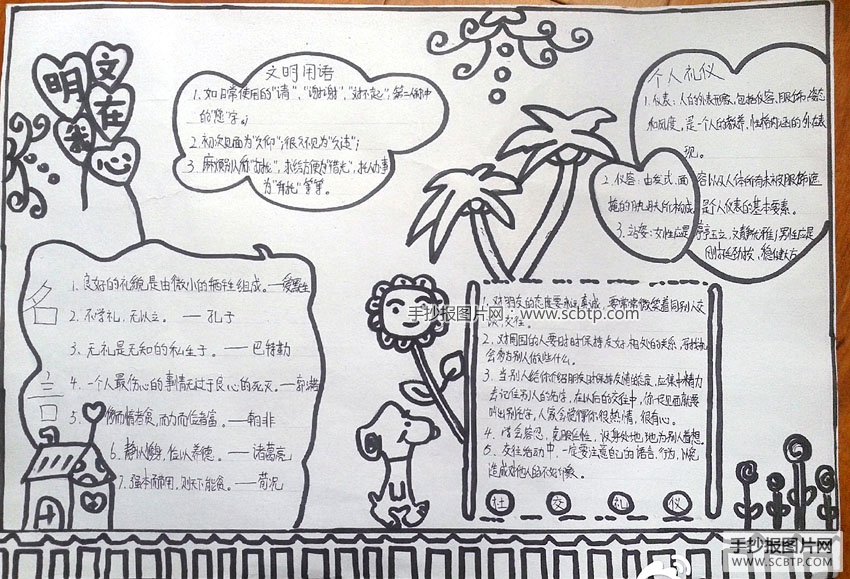 文明在我心
文明用语
1、如日常使用的"请"，"谢谢"，"对不起"，第二人称中
的"您"字。
2、初次见面为"久仰"；很久不见为"久违"；
3、麻烦别人称"打扰"，求给方便为"借光"，托人办事
为"拜托"等等。
个人礼仪
1、仪表：人的外表形象，包括仪容、服饰、姿态
和风度，是一个人的教养、性格内涵的外在表
现。
2、仪容：由发式、面容以及人体所有未被服饰遮
掩的肌肤所构成，是个人仪表的基本要素。
3、站姿：女性应是亭亭玉立，文静优雅；男性应是
刚劲挺拔，稳健大方
名言
1、良好的礼貌是由微小的牺牲组成。——爱默生
2、不学礼，无以立。——孔子
3、无礼是无知的私生子。——巴特勒
4、一个人最伤心的事情无过于良心的死灭。——郭沫若
5、侈而惰者贫，而力而俭者富。——韩非
6、静以修身，俭以养德。——诸葛亮
7、强本而节用，则天下能贫。——荀况
1、对朋友的态度要永远真诚，要常常微笑着同别人交
谈，交往。
2、对周围的人要时时保持友好相处的关系，寻找机
会多为别人做些什么。
3、当别人给你介绍朋友时保持友情的态度，应集中精力
去记住别人的名字，在以后的交往中，你一见面就要
叫出别名字，人家会觉得你很热情，很有心。
4、学会容忍，克服任性，设身处地地为别人着想。
5、交往活动中，一定要注意自己的语言、行为，以免
造成对他人的不好印象。
社交礼仪
手抄报图片网：www.scbtp.com
手抄报图片网
WWW.SCBTP.COM